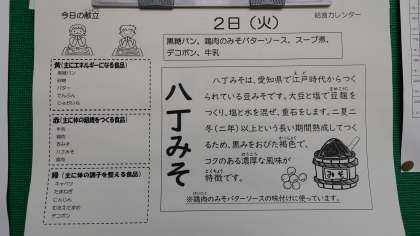 今日の献立
給食カレンダー
2日（火）
黒糖パン、鶏肉のみそバターソース、スープ煮、
デコポン、牛乳
黄(主にエネルギーになる食品)
黒糖パン
砂糖
バター
でんぷん
じゃがいも
赤(主に体の組織をつくる食品)
牛乳
鶏肉
赤みそ
八丁みそ
豚肉
緑(主に体の調子を整える食品)
キャベツ
たまねぎ
にんじん
むきえだまめ
デコポン
八丁みそ
八丁みそは、愛知県で江戸時代からつく
られている豆みそです。大豆と塩で豆麹を
つくり、塩と水を混ぜ、重石をします。二夏二
冬(二年)以上という長い期間熟成してつく
るため、黒みをおびた褐色で、
コクのある濃厚な風味が
特徴です。
みそ
※鶏肉のみそバターソースの味付けに使っています。